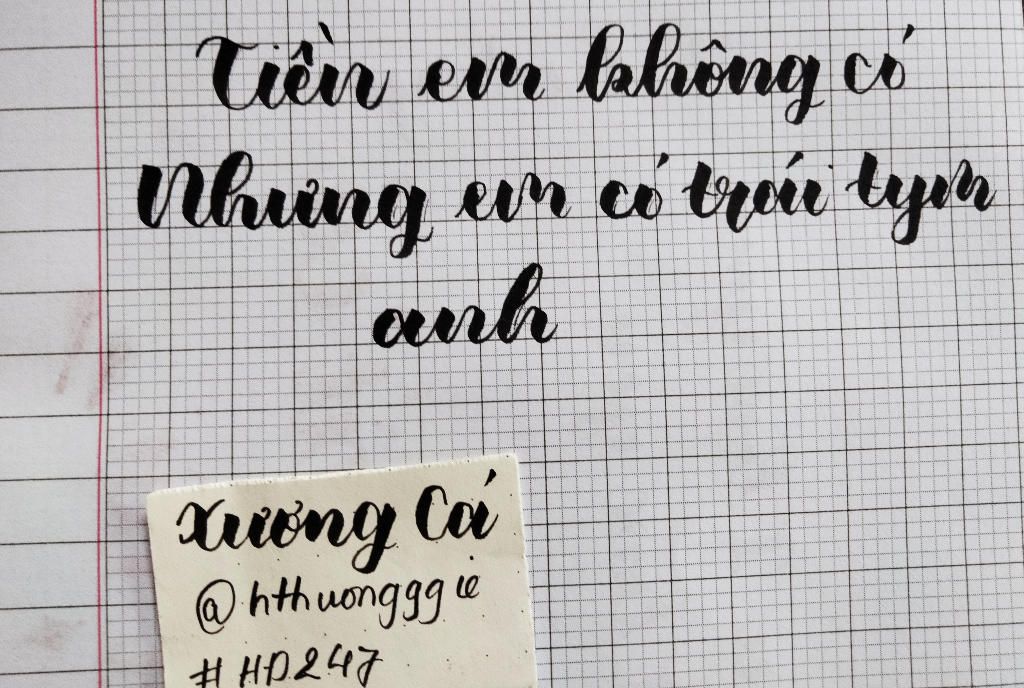 Tiền em không có
Nhưng em có trái tym
anh
Xương Cá
@hthuongggie
#HD247